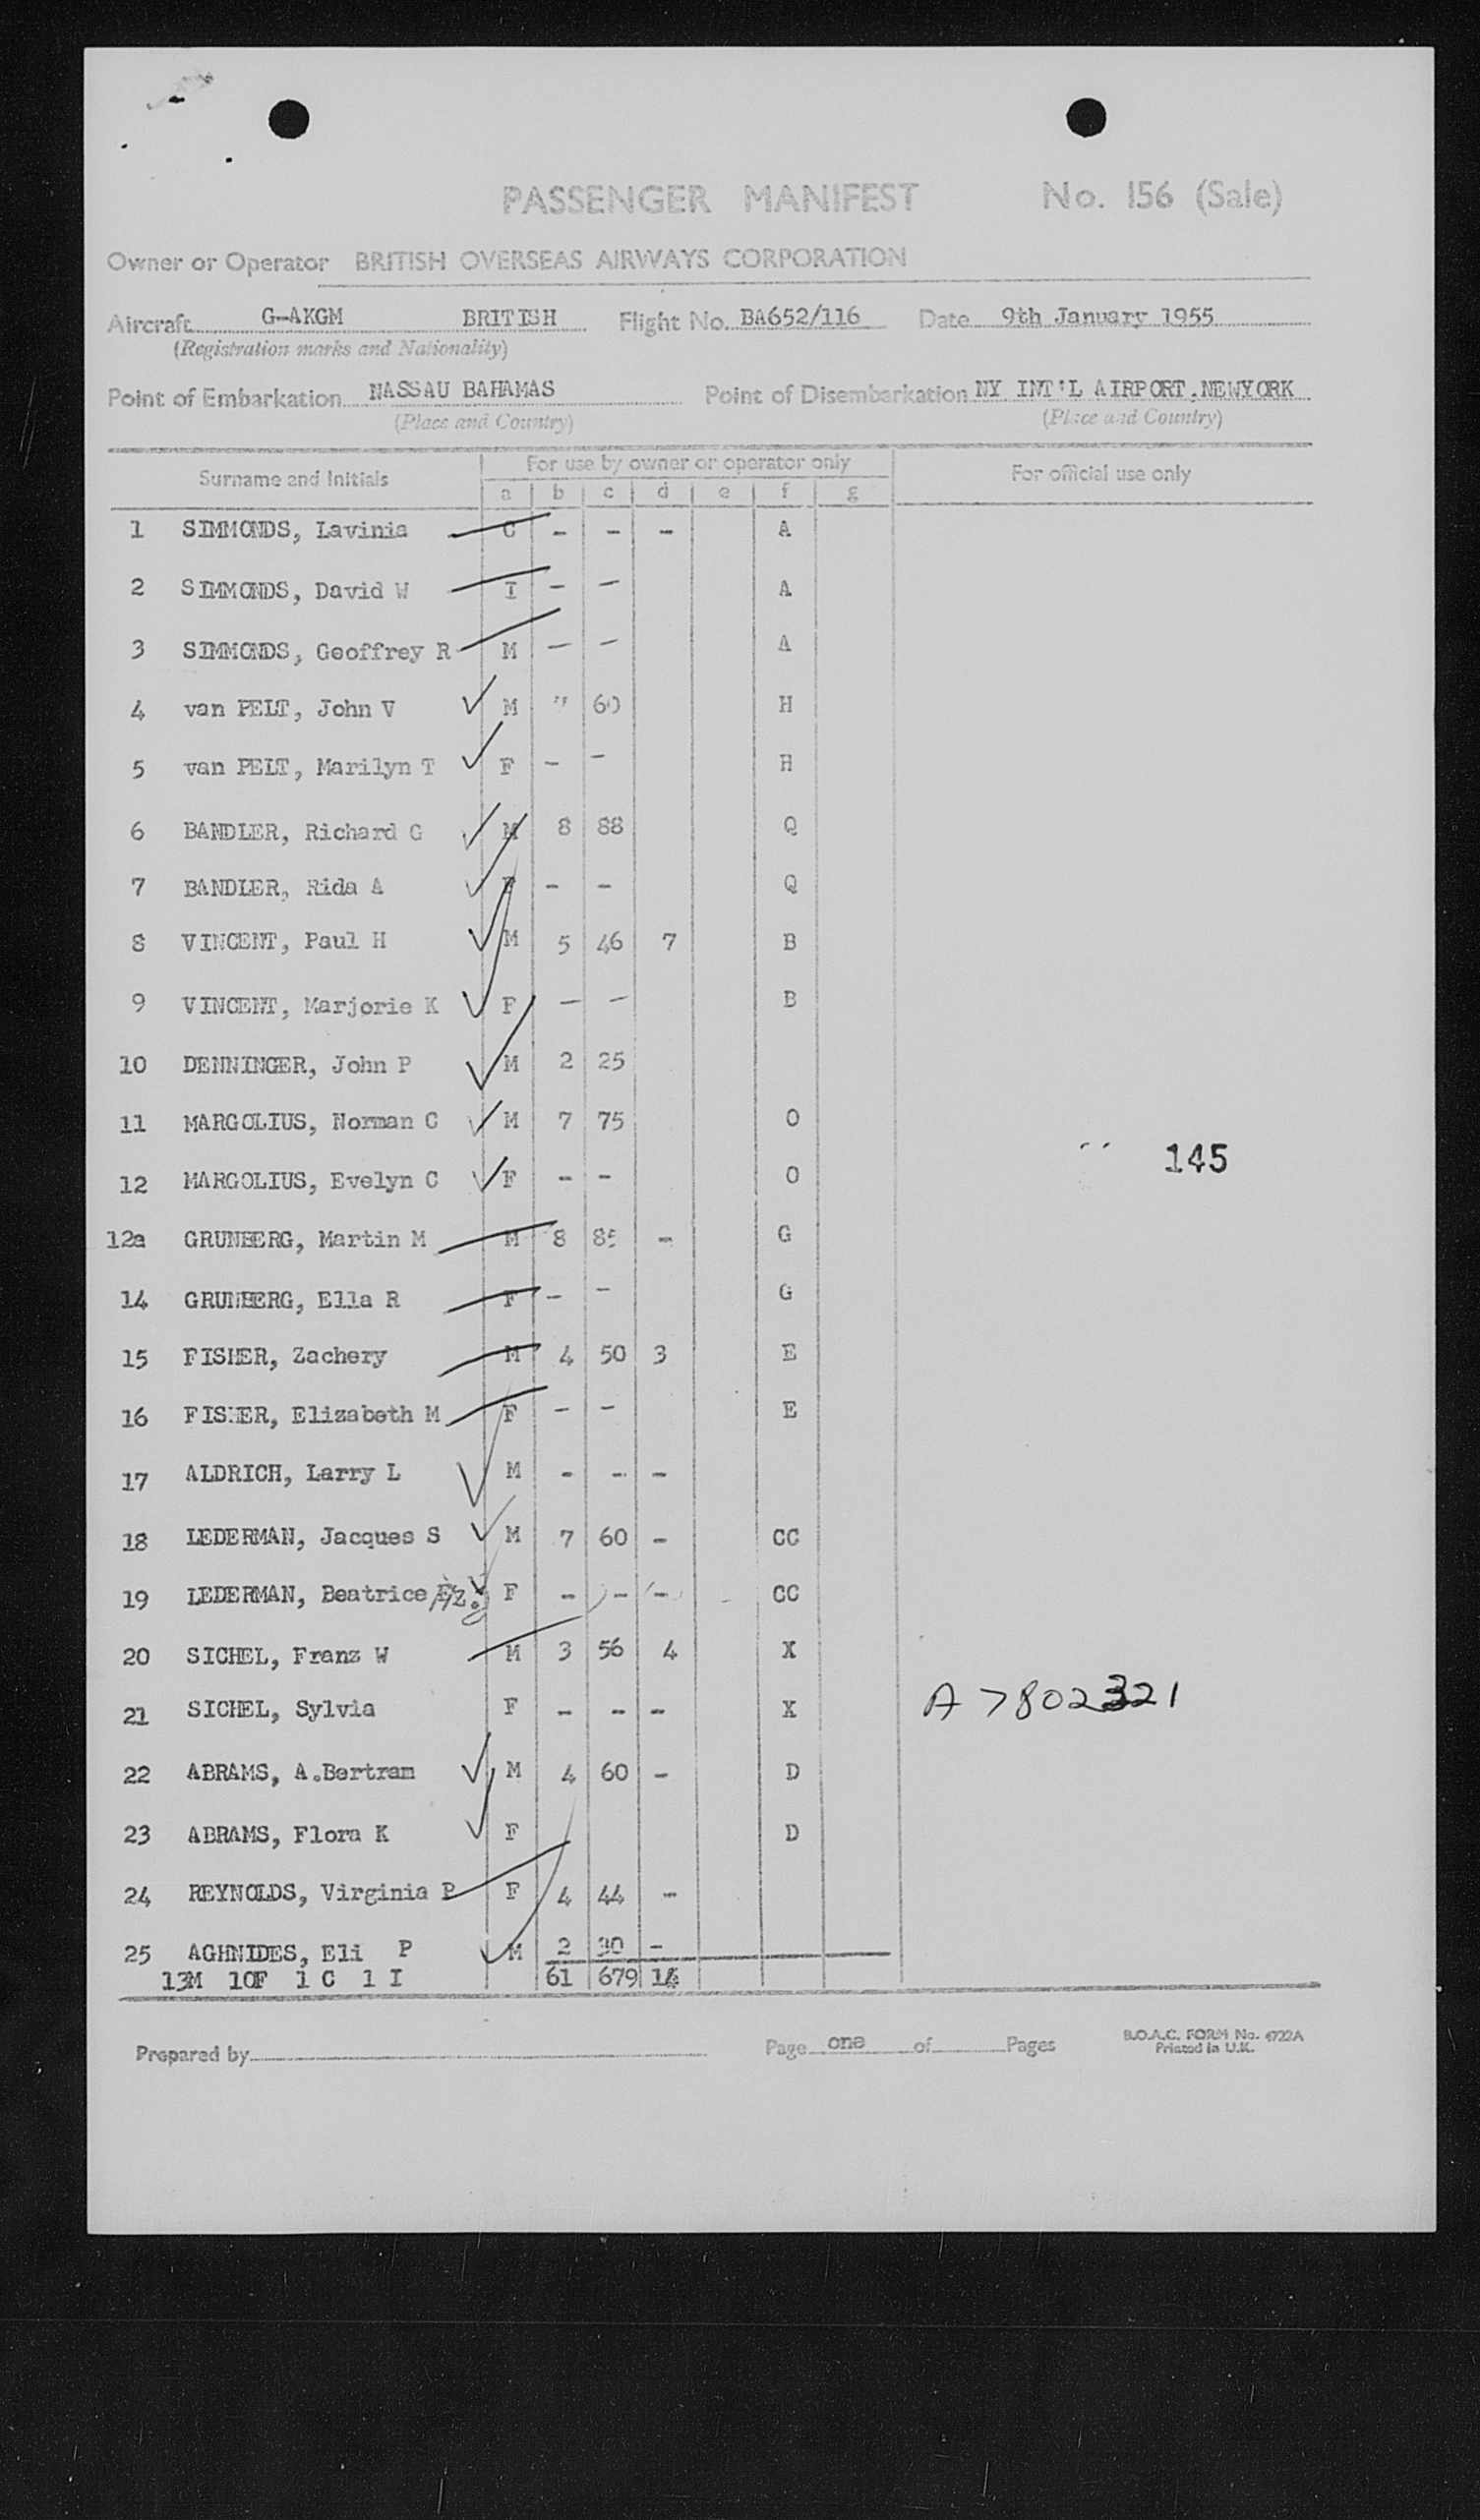 PASSENGER MANIFEST No. 156 (Sale)
Owner or Operator BRITISH OVERSEAS AIRWAYS CORPORATION
Aircraft G-AKGM BRITISH Flight No. BA652/116 Date 9th January 1955
(Registration marks and Nationality)
Point of Embarkation NASSAU BAHAMAS Point of Disembarkation NY INT'L AIRPORT.NEWYORK
(Place and Country) (Place and Country)
Surname and Initials For use by owner or operator only For official use only
a b c d e f g
1 SIMMONDS, Lavinia C - - - A
2 SIMMONDS, David W I - - A
3 SIMMONDS, Geoffrey R M - - A
4 van PELT, John V M 60 H
5 van PELT, Marilyn T F - - H
6 BANDLER, Richard G M 8 88 Q
7 BANDLER, Rida A F - - Q
8 VINCENT, Paul H M 5 46 7 B
9 VINCENT, Marjorie K F - - B
10 DENNINGER, John P M 2 25
11 MARGOLIUS, Norman C M 7 75 O
145
12 MARGOLIUS, Evelyn C F - - O
12a GRUNBERG, Martin M M 8 85 - G
14 GRUNBERG, Ella R F - - G
15 FISHER, Zachery M 4 50 3 E
16 FISHER, Elizabeth M F - - E
17 ALDRICH, Larry L M - - -
18 LEDERMAN, Jacques S M 7 60 - CC
19 LEDERMAN, Beatrice F - - - CC
20 SICHEL, Franz W M 3 56 4 X
21 SICHEL, Sylvia F - - - X A7802321
22 ABRAMS, A.Bertram M 4 60 - D
23 ABRAMS, Flora K F D
24 REYNOLDS, Virginia P F 4 44 -
25 AGHNIDES, Eli P M 2 30 -
13M 10F 1 C 1 I 61 679 14
Prepared by Page one of Pages B.O.A.C. FORM No. 6722A
Printed in U.K.